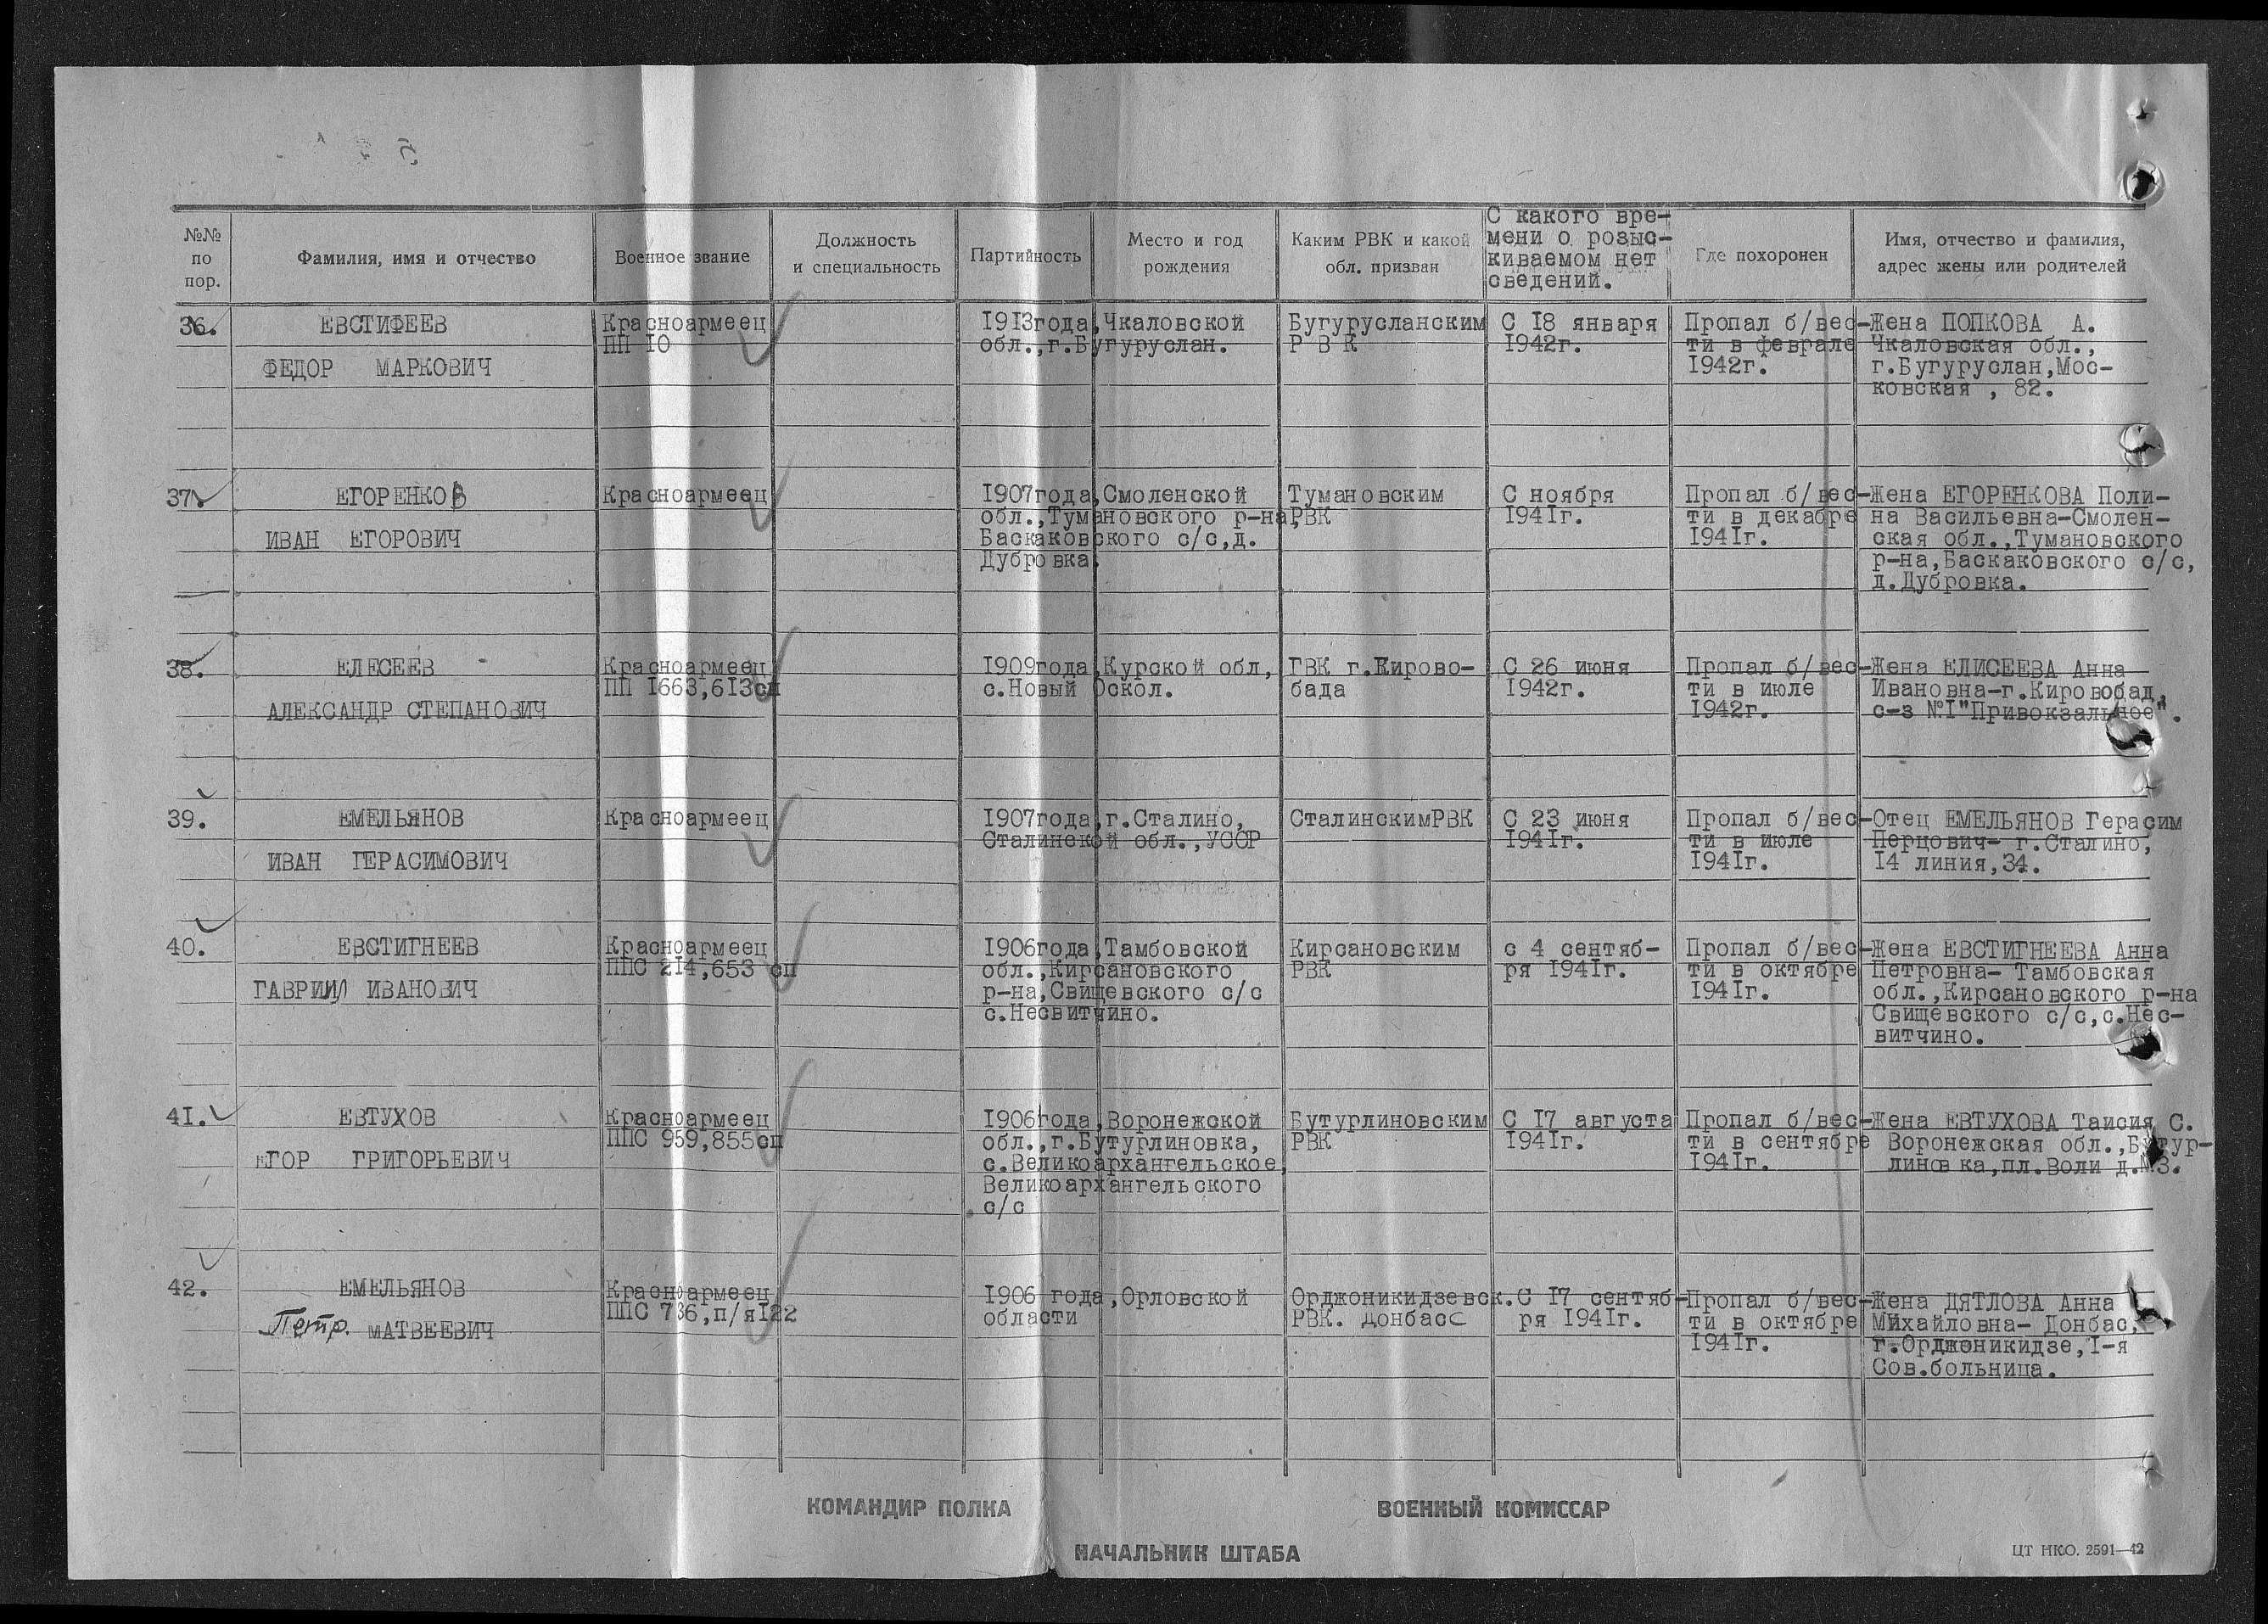 №№ по пор.
Фамилия, имя и отчество
Военное звание
Должность и специальность
Партийность
Место и год рождения
Каким РВК и какой обл. призван
С какого вре-
мени о розыс-
киваемом нет
сведений.
Где похоронен
Имя, отчество и фамилия, адрес жены или родителей
36.
ЕВСТИФЕЕВ
ФЕДОР МАРКОВИЧ
Красноармеец
ПП 10
1913года,Чкаловской
обл.,г.Бугуруслан.
Бугурусланским
Р В К
С 18 января
1942г.
Пропал б/вес-
ти в феврале
1942г.
Жена ПОПКОВА А.
Чкаловская обл.,
г.Бугуруслан,Мос-
ковская , 82.
37.
ЕГОРЕНКОВ
ИВАН ЕГОРОВИЧ
Красноармеец
1907года,Смоленской
обл.,Тумановского р-на,
Баскаковского с/с,д.
Дубровка.
Тумановским
РВК
С ноября
1941г.
Пропал б/вес-
ти в декабре
1941г.
Жена ЕГОРЕНКОВА Поли-
на Васильевна-Смолен-
ская обл.,Тумановского
р-на,Баскаковского с/с,
д.Дубровка.
38.
ЕЛЕСЕЕВ
АЛЕКСАНДР СТЕПАНОВИЧ
Красноармеец
ПП 1663,613сп
1909года,Курской обл,
с.Новый Оскол.
ГВК г.Кирово-
бада
С 26 июня
1942г.
Пропал б/вес-
ти в июле
1942г.
Жена ЕЛИСЕЕВА Анна
Ивановна-г.Кировобад,
с-з №1"Привокзальное".
39.
ЕМЕЛЬЯНОВ
ИВАН ГЕРАСИМОВИЧ
Красноармеец
1907года,г.Сталино,
Сталинской обл.,УССР
СталинскимРВК
С 23 июня
1941г.
Пропал б/вес-
ти в июле
1941г.
Отец ЕМЕЛЬЯНОВ Герасим
Перцович- г.Сталино,
14 линия,34.
40.
ЕВСТИГНЕЕВ
ГАВРИИЛ ИВАНОВИЧ
Красноармеец
ППС 214,653 сп
1906года,Тамбовской
обл.,Кирсановского
р-на,Свищевского с/с
с.Несвитчино.
Кирсановским
РВК
с 4 сентяб-
ря 1941г.
Пропал б/вес-
ти в октябре
1941г.
Жена ЕВСТИГНЕЕВА Анна
Петровна- Тамбовская
обл.,Кирсановского р-на
Свищевского с/с,с.Нес-
витчино.
41.
ЕВТУХОВ
ЕГОР ГРИГОРЬЕВИЧ
Красноармеец
ППС 959,855сп
1906года,Воронежской
обл.,г.Бутурлиновка,
с.Великоархангельское,
Великоархангельского
с/с
Бутурлиновским
РВК
С 17 августа
1941г.
Пропал б/вес-
ти в сентябре
1941г.
Жена ЕВТУХОВА Таисия С.
Воронежская обл.,Бутур-
линовка,пл.Воли д.№3.
42.
ЕМЕЛЬЯНОВ
Петр. МАТВЕЕВИЧ
Красноармеец
ППС 736,п/я122
1906 года,Орловской
области
Орджоникидзевск.
РВК. Донбасс
С 17 сентяб-
ря 1941г.
Пропал б/вес-
ти в октябре
1941г.
Жена ДЯТЛОВА Анна
Михайловна- Донбас,
г.Орджоникидзе,1-я
Сов.больница.
КОМАНДИР ПОЛКА
ВОЕННЫЙ КОМИССАР
НАЧАЛЬНИК ШТАБА
ЦТ НКО. 2591—42